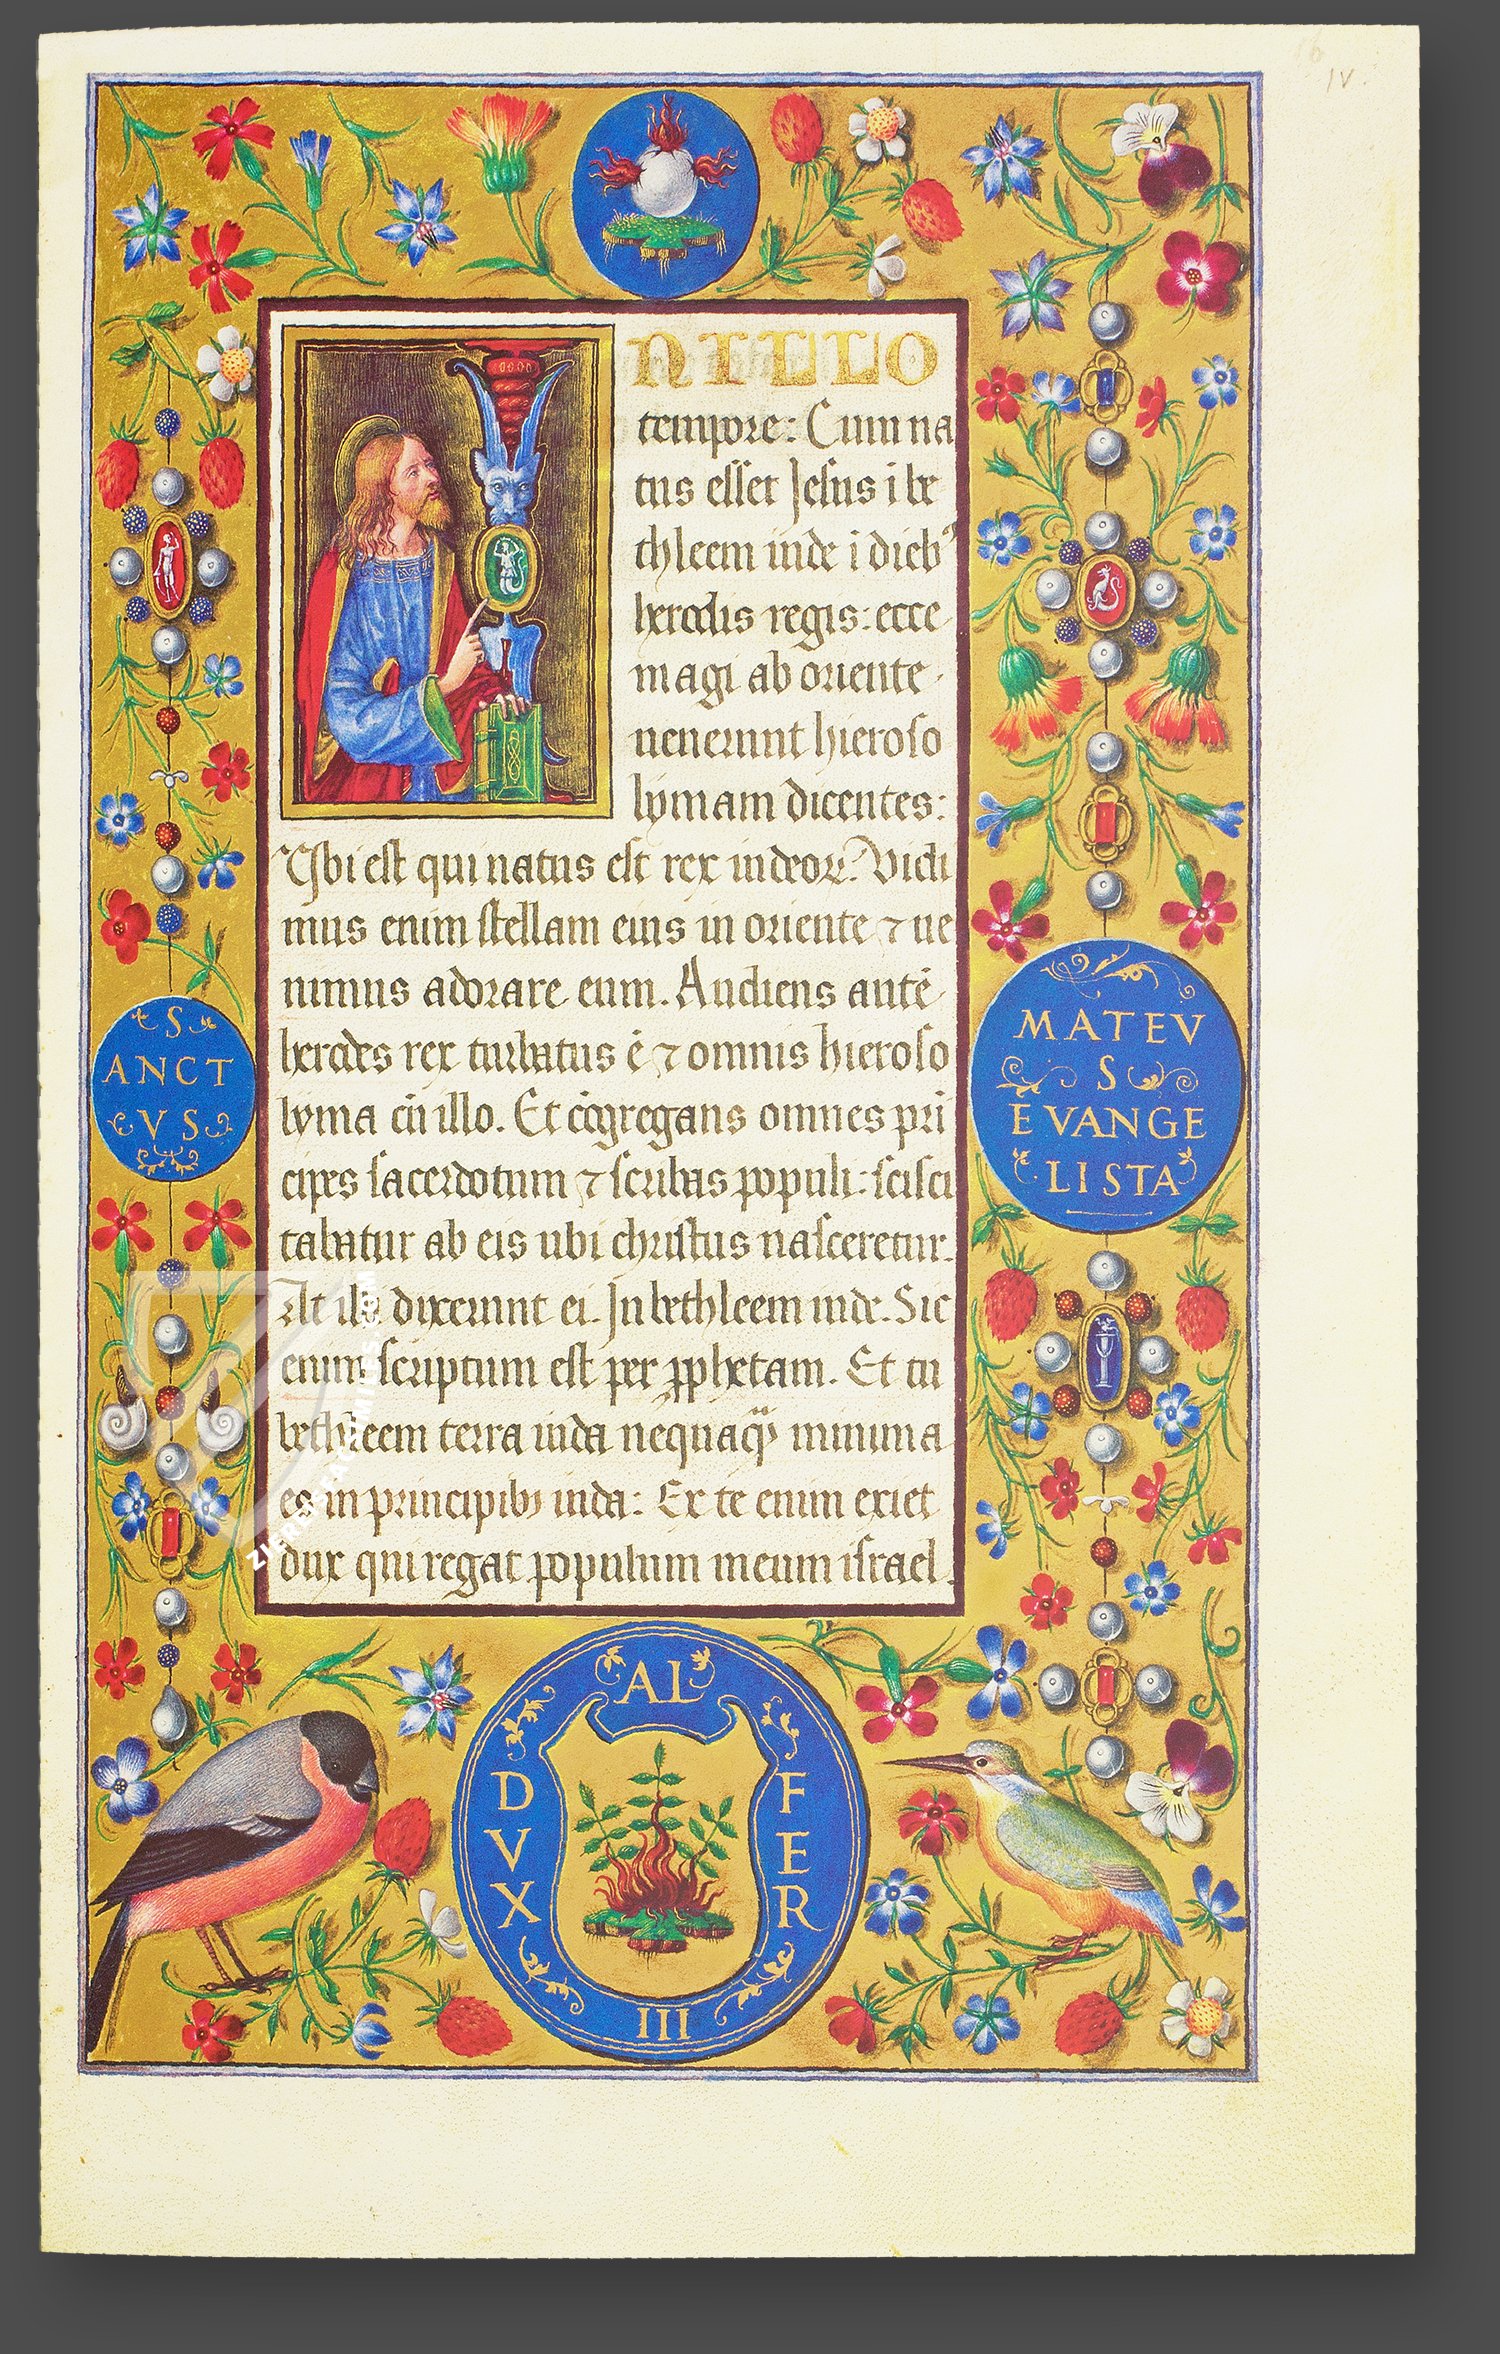 IV.
NILLO
tempore: Cum na
tus esset Jesus i be
thleem iude i dieb⁹
herodis regis: ecce
magi ab oriente
uenerunt hieroso
lymam dicentes:
Vbi est qui natus est rex iudeoꝝ? Vidi
mus enim stellam eius in oriente ⁊ ue
nimus adorare eum. Audiens autē
herodes rex turbatus ē ⁊ omnis hieroso
lyma cū illo. Et cōgregans omnes pri
cipes sacerdotum ⁊ scribas populi: scisci
tabatur ab eis ubi christus nasceretur.
At illi dixerunt ei. In bethleem iude. Sic
enim scriptum est per ꝓphetam. Et tu
bethleem terra iuda nequaqꝫ minima
es in principibꝫ iuda: Ex te enim exiet
dux qui regat populum meum israel.
S
ANCT
VS
MATEV
S
EVANGE
LISTA
AL
FER
DVX
III